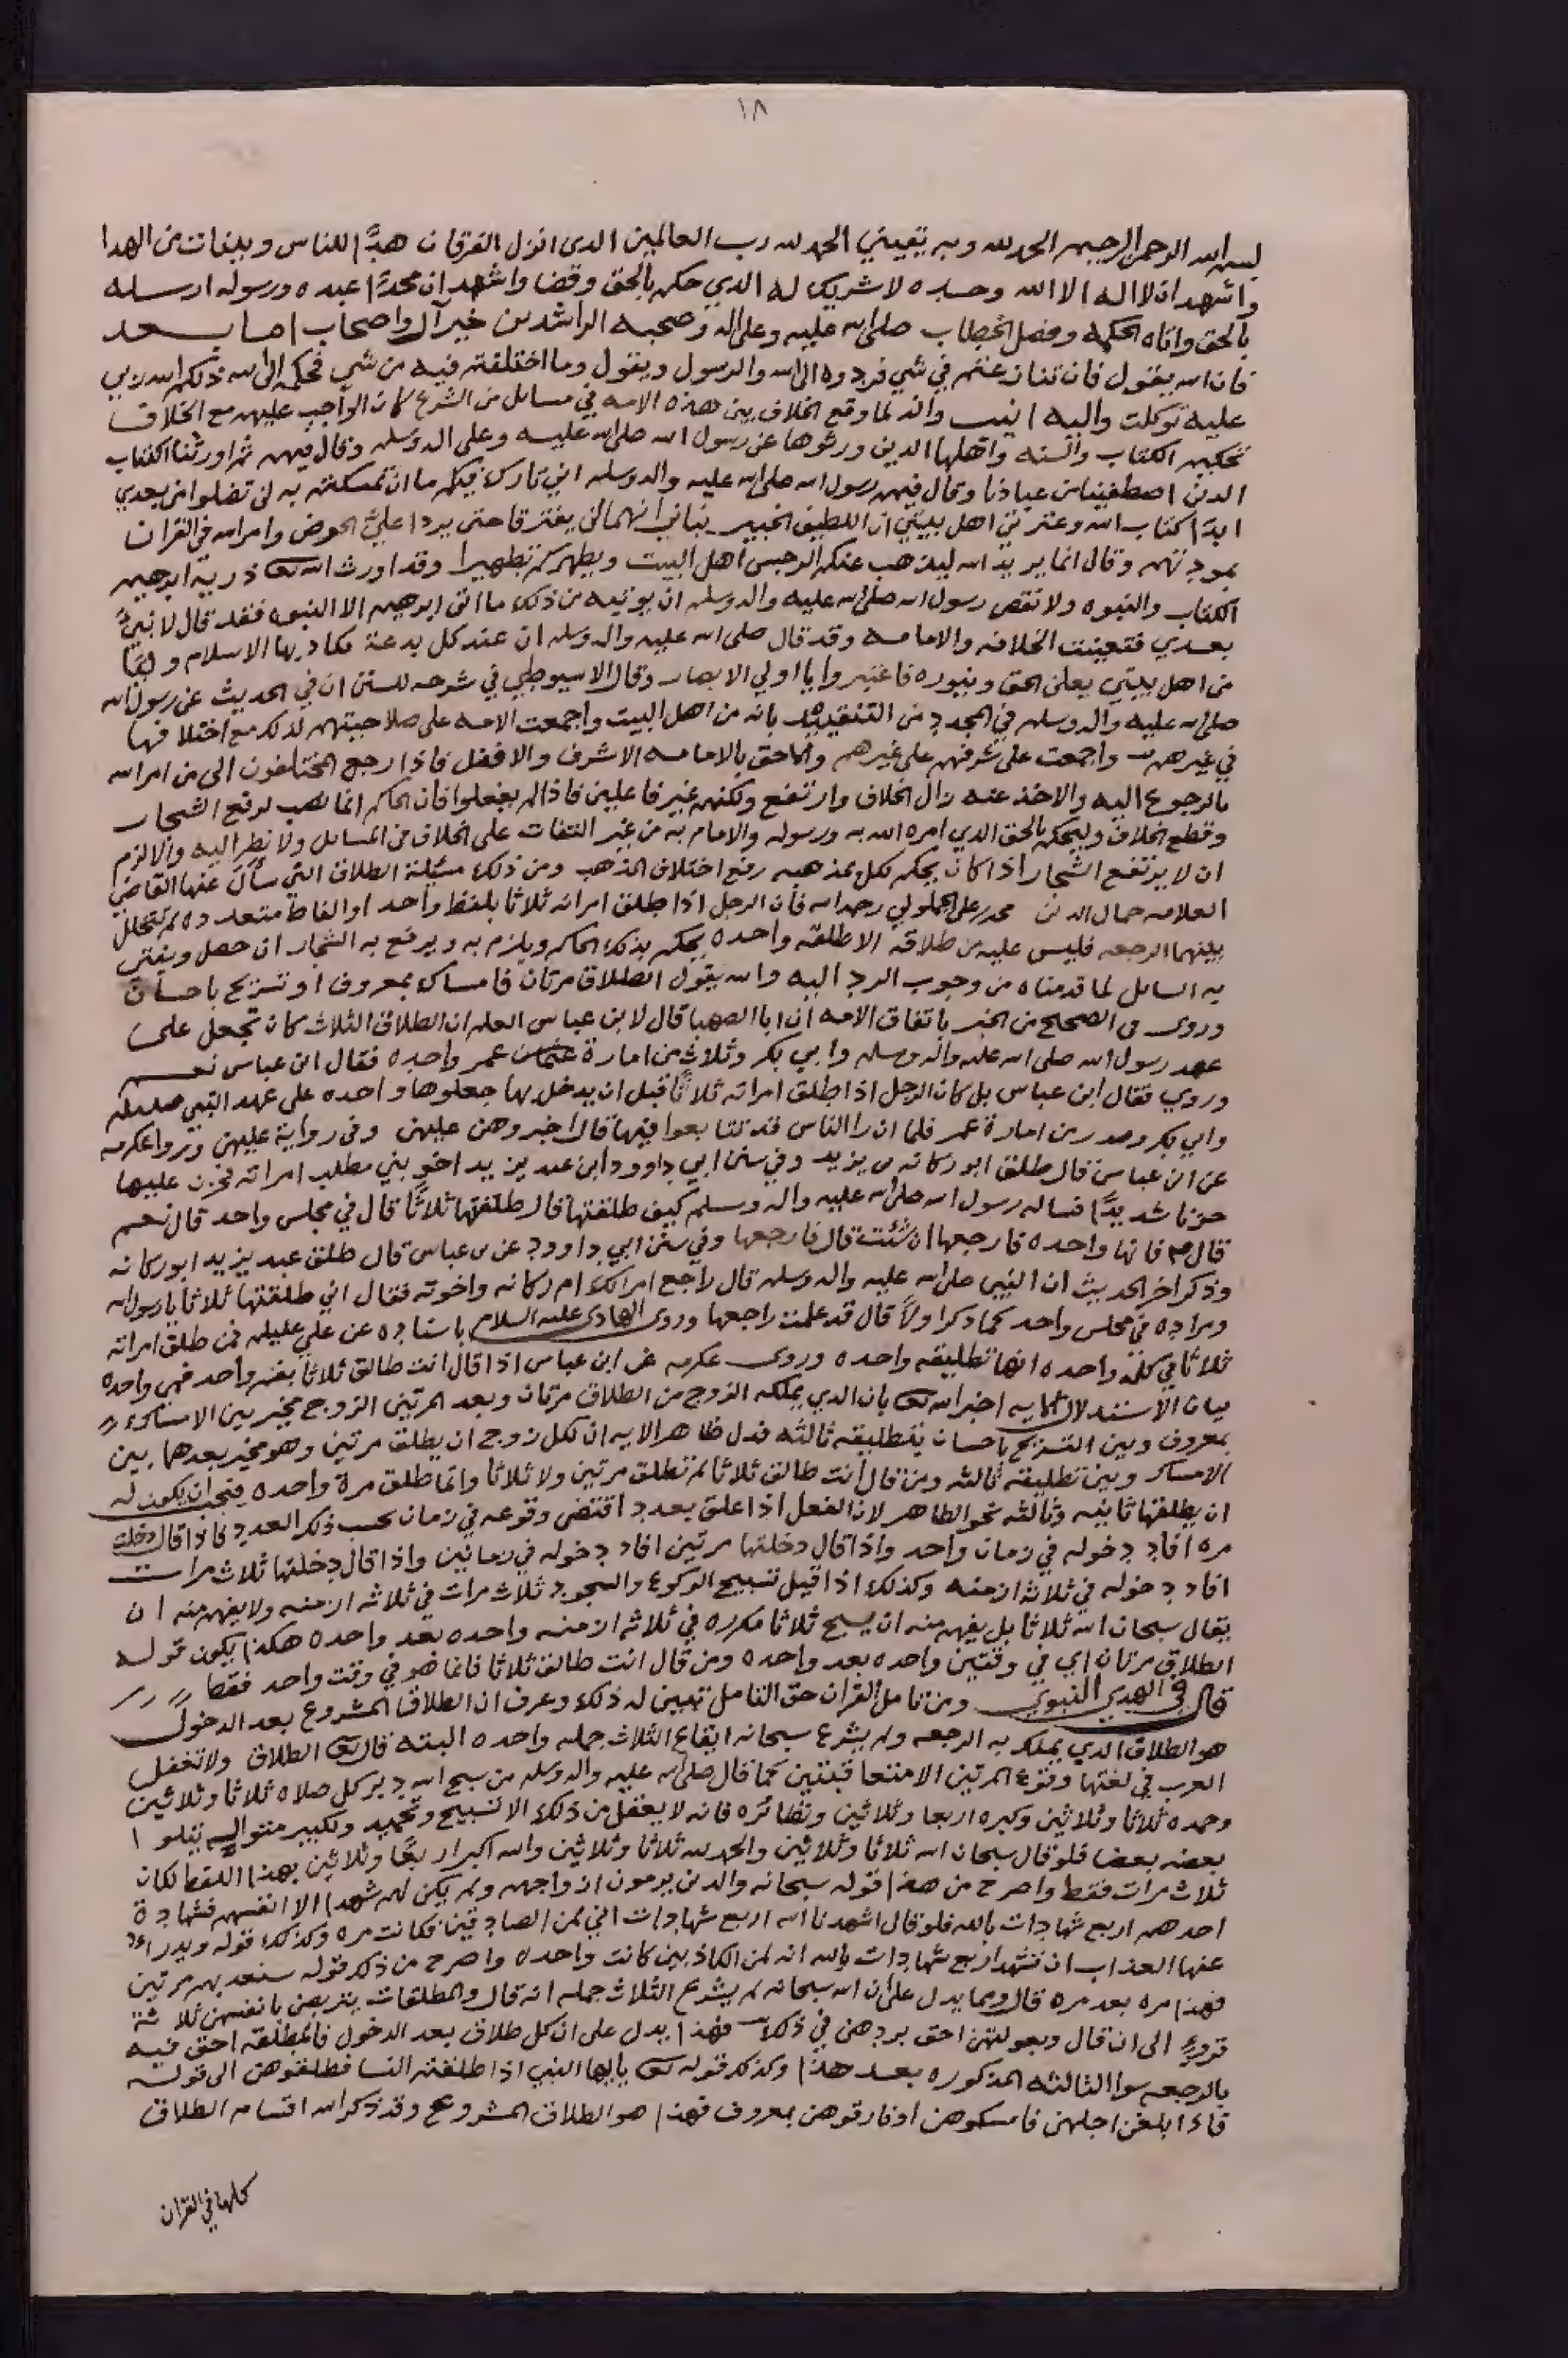 ١٨
بسم الله الرحمن الرحيم الحمد لله وبه ثقتي الحمد لله رب العالمين الذى انزل الفرقان هدًا للناس وبينات من الهدا
واشهد ان لا اله الا الله وحده لا شريك له الذي حكم بالحق وقضا واشهد ان محمدًا عبده ورسوله ارسله
بالحق واتاه الحكمة وفصل الخطاب صلى الله عليه وعلى اله وصحبه الراشدين خير آل واصحاب اما بعد
فان الله يقول فان تنازعتم في شي فردوه الى الله والرسول ويقول وما اختلفتم فيه من شي فحكمه الى الله ذلكم الله ربي
عليه توكلت واليه انيب وانه لما وقع الخلاف بين هذه الامه في مسايل من الشرع كان الواجب عليهم مع الخلاف
تحكيم الكتاب والسنه واهلها الذين ورثوها عن رسول الله صلى الله عليه وعلى اله وسلم وقال فيهم ثم اورثنا الكتاب
الذين اصطفينا من عبادنا وقال فيهم رسول الله صلى الله عليه واله وسلم اني تارك فيكم ما ان تمسكتم به لن تضلوا من بعدي
ابدًا كتاب الله وعترتي اهل بيتي ان اللطيف الخبير نباني انهما لن يفترقا حتى يردا عليَّ الحوض وامر الله في القران
بمودتهم وقال انما يريد الله ليذهب عنكم الرجس اهل البيت ويطهركم تطهيرا وقد اورث الله تعا ذرية ابرهيم
الكتاب والنبوه ولا نقص رسول الله صلى الله عليه واله وسلم ان يوتيه من ذلك ما اتى ابرهيم الا النبوه فقد قال لا نبيَّ
بعدي فتعينت الخلافه والامامه وقد قال صلى الله عليه واله وسلم ان عند كل بدعة يكاد بها الاسلام وليًّا
من اهل بيتي يعلن الحق وينوره فاعتبروا يا اولي الابصار وقال الاسيوطي في شرحه للسنن ان في الحديث عن رسول الله
صلى الله عليه واله وسلم في المجدد من التقييد بانه من اهل البيت واجمعت الامه على صلاحيتهم لذلك مع اختلافها
في غيرهم واجمعت على شرفهم على غيرهم والاحق بالامامه الاشرف والافضل فاذا رجع المختلفون الى من امر الله
بالرجوع اليه والاخذ عنه زال الخلاف وارتفع ولكنهم غير فاعلين فاذا لم يفعلوا فان الحاكم انما نصب لرفع الشجار
وقطع الخلاف وليحكم بالحق الذي امره الله به ورسوله والامام به من غير التفات على الخلاف من المسايل ولا نظر اليه والا لزم
ان لا يرتفع الشجار اذا كان يحكم لكل بمذهبه رفع اختلاف المذهب ومن ذلك مسئلة الطلاق التي سأل عنها القاضي
العلامه جمال الدين محمد بن علي رحمه الله فان الرجل اذا طلق امراته ثلاثا بلفظ واحد او الفاظ متعدده لم تتخلل
بينهما الرجعه فليس عليه من طلاقه الا طلقه واحده يحكم بذلك الحاكم ويلزم به ويرفع به الشجار ان حصل ويفتي
به السايل لما قدمناه من وجوب الرد اليه والله يقول الطلاق مرتان فامساك بمعروف او تسريح باحسان
وروى في الصحيح من الخبر باتفاق الامه ان ابا الصهبا قال لابن عباس العلم ان الطلاق الثلاث كان تجعل على
عهد رسول الله صلى الله عليه واله وسلم وابي بكر وثلاث من امارة عمر واحده فقال ابن عباس نعم
وروي فقال ابن عباس بل كان الرجل اذا طلق امراته ثلاثًا قبل ان يدخل بها جعلوها واحده على عهد النبي صلعم
وابي بكر وصدر من امارة عمر فلما ان را الناس قد تتابعوا فيها قال اجيزوهن عليهن وفي رواية عليهن وروا عكرمه
عن ابن عباس قال طلق ابو ركانه بن يزيد وفي سنن ابي داوود ابن عبد يزيد اخو بني مطلب امراته فحزن عليها
حزنا شديدًا فساله رسول الله صلى الله عليه واله وسلم كيف طلقتها قال طلقتها ثلاثًا قال في مجلس واحد قال نعم
قال صلم فانها واحده فارجعها ان شئت قال فارجعها وفي سنن ابي داوود عن بن عباس قال طلق عبد يزيد ابو ركانه
وذكر اخر الحديث ان النبي صلى الله عليه واله وسلم قال راجع امراتك ام ركانه واخوته فقال اني طلقتها ثلاثا يا رسول الله
ومراده في مجلس واحد كما ذكر اولاً قال قد علمت راجعها وروى الهادى عليه السلام باسناده عن علي عليلم فمن طلق امراته
ثلاثا في كلمه واحده انها تطليقه واحده وروى عكرمه عن ابن عباس اذا قال انت طالق ثلاثا بفم واحد فهي واحده
بيان الاستدلال بالايه اخبر الله تعا بان الذي يملكه الزوج من الطلاق مرتان وبعد المرتين الزوج مخير بين الامساك
بمعروف وبين التسريح باحسان بتطليقه ثالثه فدل ظاهر الايه ان لكل زوج ان يطلق مرتين وهو مخير بعدهما بين
الامساك وبين تطليقه ثالثه ومن قال انت طالق ثلاثا لم تطلق مرتين ولا ثلاثا وانما طلق مرة واحده فيجب ان يكون له
ان يطلقها ثانيه وثالثه نحو الظاهر لان الفعل اذا علق بعدد اقتضى وقوعه في زمان بحسب ذلك العدد فاذا قال دخلت
مره افاد دخوله في زمان واحد واذا قال دخلتها مرتين افاد دخوله في زمانين واذا قال دخلتها ثلاث مرات
افاد دخوله في ثلاثه ازمنه وكذلك اذا قيل تسبيح الركوع والسجود ثلاث مرات في ثلاثه ازمنه ولا يفهم منه ان
يقال سبحان الله ثلاثا بل يفهم منه ان يسبح ثلاثا مكرره في ثلاثه ازمنه واحده بعد واحده هكذا يكون قوله
الطلاق مرتان اي في وقتين واحده بعد واحده ومن قال انت طالق ثلاثا فانما هو في وقت واحد فقط
قال في الهدي النبوي ومن تامل القران حق التامل تبين له ذلك وعرف ان الطلاق المشروع بعد الدخول
هو الطلاق الذي يملك به الرجعه ولم يشرع سبحانه ايقاع الثلاث جمله واحده البته قال تعا الطلاق ولا تعقل
العرب في لغتها وقوع المرتين الا متعاقبتين كما قال صلى الله عليه واله وسلم من سبح الله دبر كل صلاه ثلاثا وثلاثين
وحمده ثلاثا وثلاثين وكبره اربعا وثلاثين ونظائره فانه لا يعقل من ذلك الا تسبيح وتحميد وتكبير متوالٍ يتلوا
بعضه بعضا فلو قال سبحان الله ثلاثا وثلاثين والحمد لله ثلاثا وثلاثين والله اكبر اربعًا وثلاثين بهذا اللفظ لكان
ثلاث مرات فقط واصرح من هذا قوله سبحانه والذين يرمون ازواجهم ولم يكن لهم شهدا الا انفسهم فشهادة
احدهم اربع شهادات بالله فلو قال اشهد بالله اربع شهادات اني لمن الصادقين فكانت مره وكذلك قوله ويدراء
عنها العذاب ان تشهد اربع شهادات بالله انه لمن الكاذبين كانت واحده واصرح من ذلك قوله سنعذبهم مرتين
فهذا مره بعد مره قال ومما يدل على ان الله سبحانه لم يشرع الثلاث جمله انه قال والمطلقات يتربصن بانفسهن ثلاثة
قروء الى ان قال وبعولتهن احق بردهن في ذلك فهذا يدل على ان كل طلاق بعد الدخول فالمطلقه احق فيه
بالرجعه سوا الثالثه المذكوره بعد هذا وكذلك قوله تعا ياايها النبي اذا طلقتم النسا فطلقوهن الى قوله
فاذا بلغن اجلهن فامسكوهن او فارقوهن بمعروف فهذا هو الطلاق المشروع وقد ذكر الله اقسام الطلاق
كلها في القران